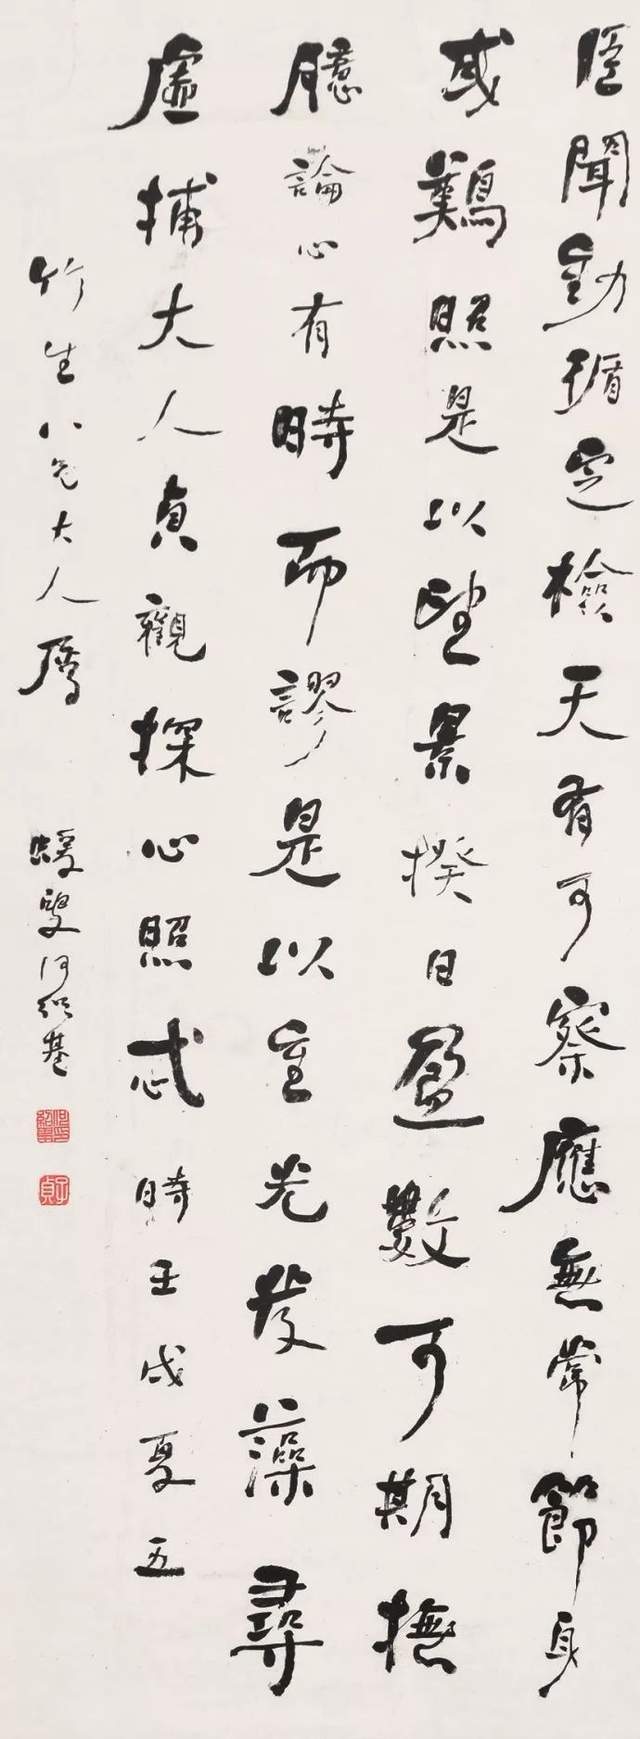 臣聞動循定檢天有可察應無常節身
或難照是以望景揆日盈數可期撫
臆論心有時而謬是以重光發藻尋
虛捕大人貞觀探心照忒時壬戌夏五
竹生八兄大人屬
蝯叟何紹基
子貞